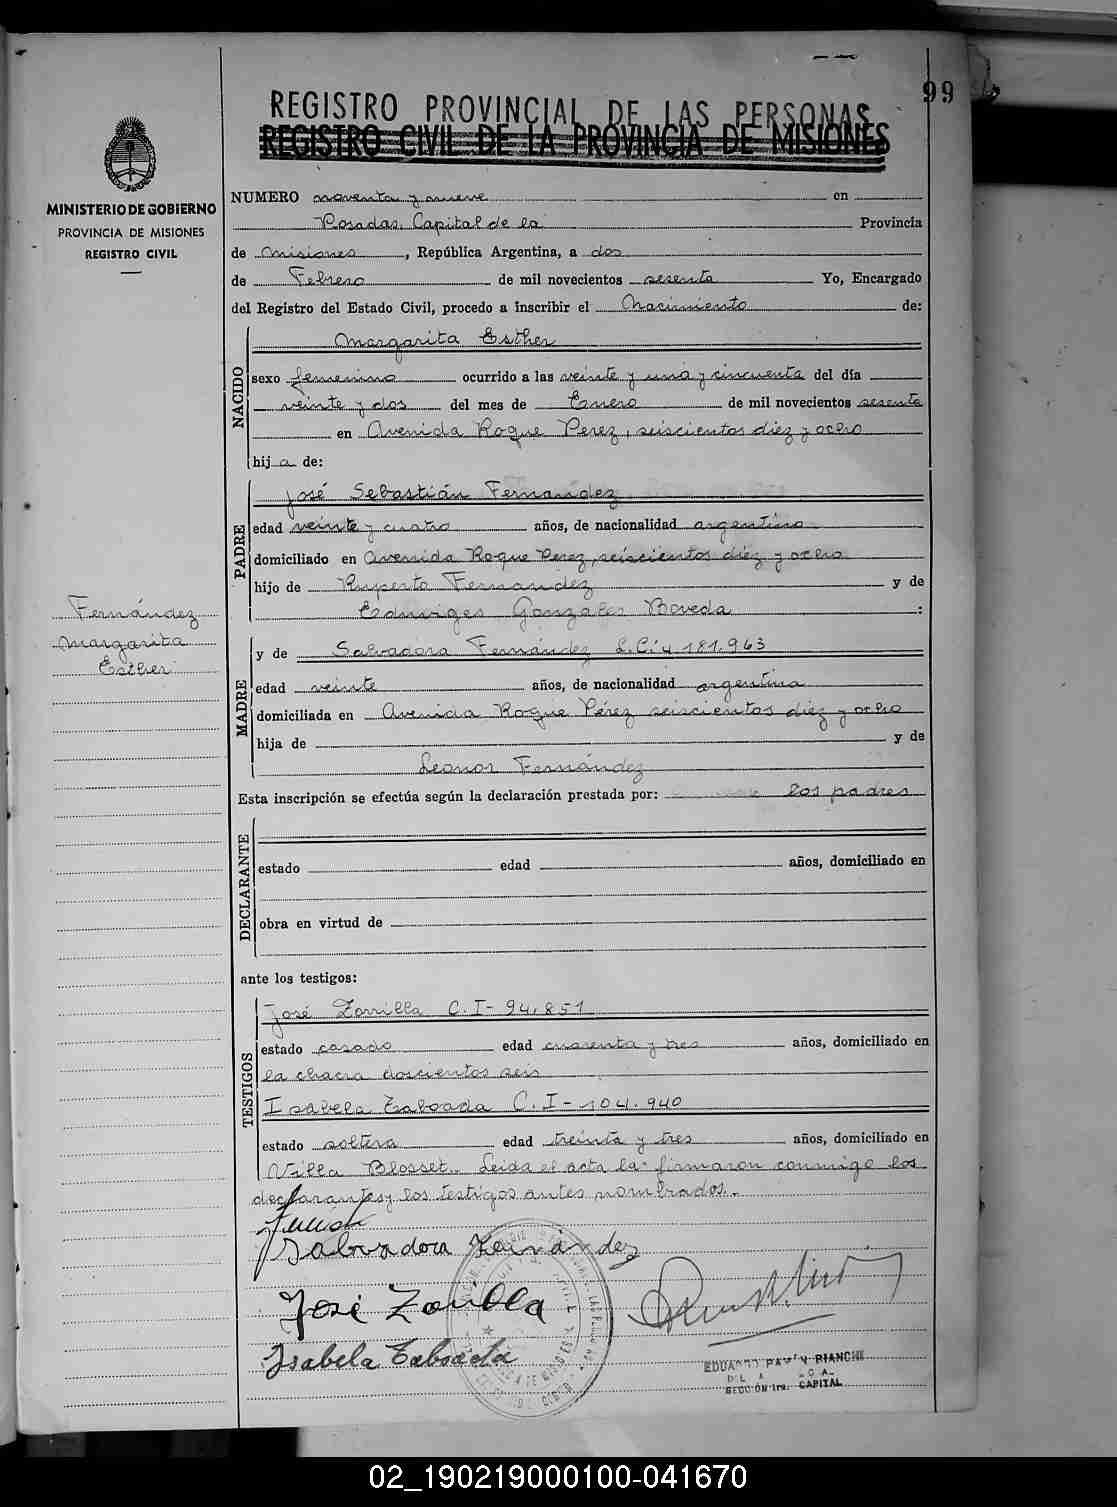 99
REGISTRO PROVINCIAL DE LAS PERSONAS
REGISTRO CIVIL DE LA PROVINCIA DE MISIONES
MINISTERIO DE GOBIERNO
PROVINCIA DE MISIONES
REGISTRO CIVIL
NUMERO noventa y nueve en
Posadas, Capital de la Provincia
de Misiones, República Argentina, a dos
de Febrero de mil novecientos sesenta Yo, Encargado
del Registro del Estado Civil, procedo a inscribir el Nacimiento de:
NACIDO
Margarita Esther
sexo femenino ocurrido a las veinte y una y cincuenta del día
veinte y dos del mes de Enero de mil novecientos sesenta
en Avenida Roque Perez, seiscientos diez y ocho
hij a de:
PADRE
José Sebastián Fernandez
edad veinte y cuatro años, de nacionalidad argentino
domiciliado en Avenida Roque Perez, seiscientos diez y ocho
hijo de Ruperto Fernandez y de
Eduviges Gonzales Boveda :
Fernández
Margarita
Esther
MADRE
y de Salvadora Fernández L.C: 4.181.963
edad veinte años, de nacionalidad argentina
domiciliada en Avenida Roque Pérez seiscientos diez y ocho
hija de y de
Leonor Fernández
Esta inscripción se efectúa según la declaración prestada por: los padres
DECLARANTE
estado edad años, domiciliado en
obra en virtud de
ante los testigos:
TESTIGOS
José Zorrilla C.I- 94.851
estado casado edad cuarenta y tres años, domiciliado en
la chacra doscientos seis
Isabela Taboada C.I- 104.940
estado soltera edad treinta y tres años, domiciliado en
Villa Blosset. Leida el acta la firmaron conmigo los
declarantes y los testigos antes nombrados.
Salvadora Fernández
José Zorrilla
Isabela Taboada
EDUARDO RAMÓN BIANCHI
SECCIÓN 1ra. CAPITAL
02_190219000100-041670